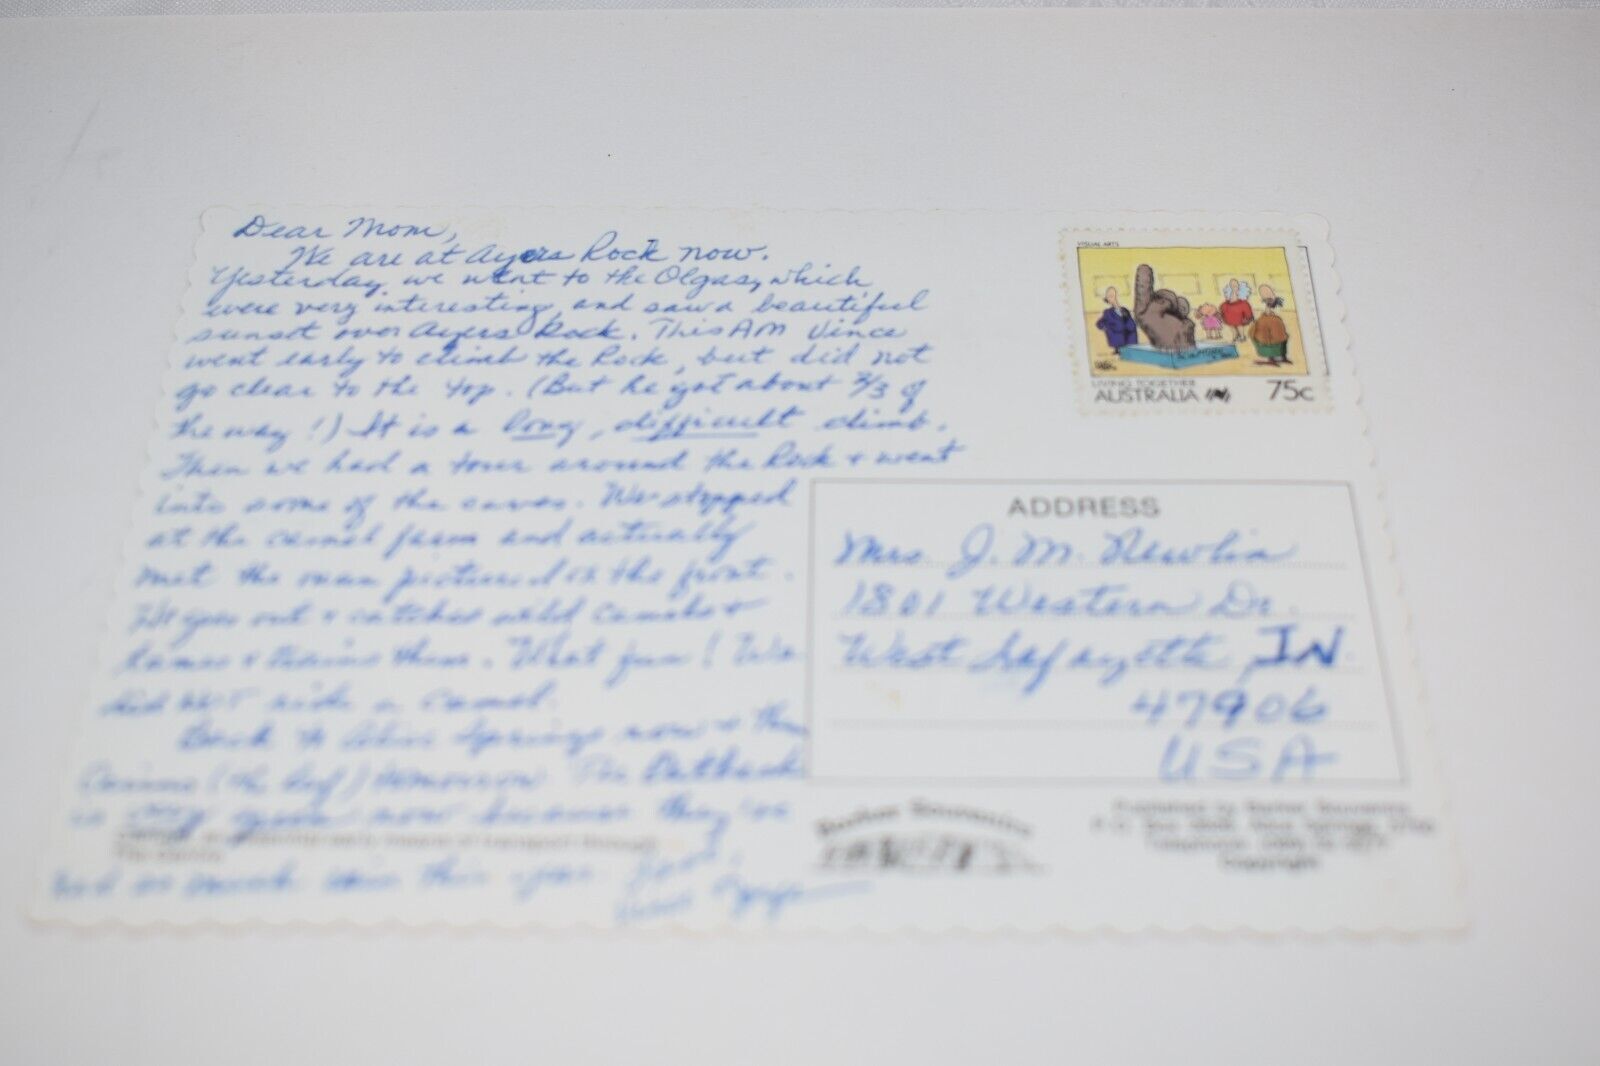 Dear Mom,
We are at Ayers Rock now.
Yesterday we went to the Olgas, which
were very interesting, and saw a beautiful
sunset over Ayers Rock. This AM Vince
went early to climb the Rock, but did not
go clear to the top. (But he got about 2/3 of
the way!) It is a long, difficult climb.
Then we had a tour around the Rock + went
into some of the caves. We stopped
at the camel farm and actually
met the man pictured on the front.
He goes out + catches wild camels +
tames + trains them. What fun! We
did NOT ride a camel.
Back to Alice Springs now + then
Cairns (the reef) tomorrow. The Outback
is very green now because they've
had so much rain this year. Love,
transport through
VISUAL ARTS
LIVING TOGETHER
AUSTRALIA 75c
ADDRESS
Mrs. J. M. Newlin
1801 Western Dr.
West Lafayette, IN.
47906
USA
Barker Souvenirs
Published by Barker Souvenirs
P.O. Box Alice Springs,
Copyright